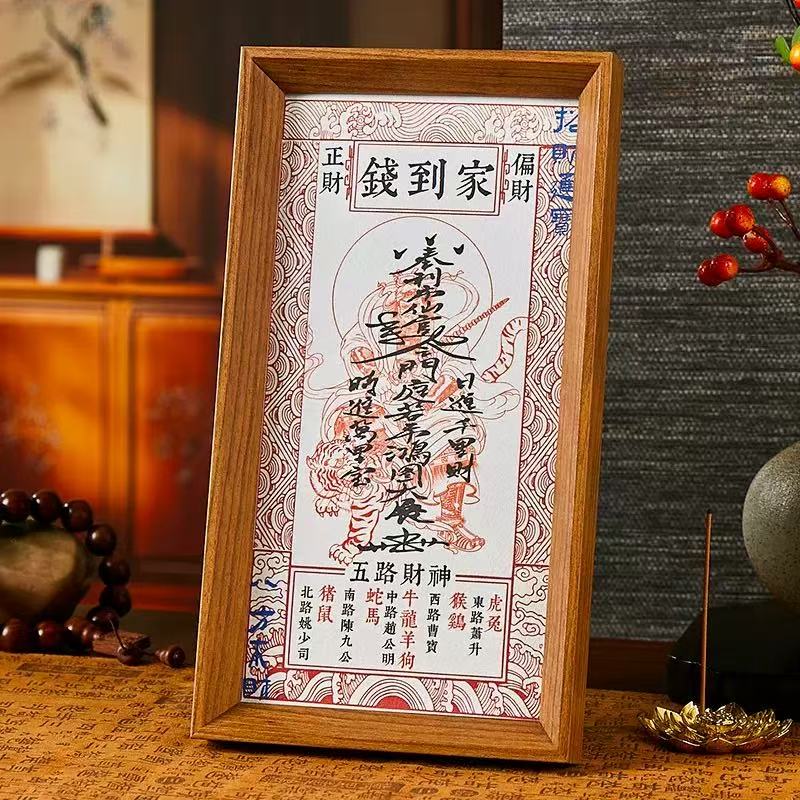 招財進寶
偏財
錢到家
正財
日進千里財
鴻图大展
時進萬里宝
五路財神
虎兔
東路蕭升
猴鷄
西路曹寶
牛龍羊狗
中路趙公明
蛇馬
南路陳九公
猪鼠
北路姚少司
八方來財